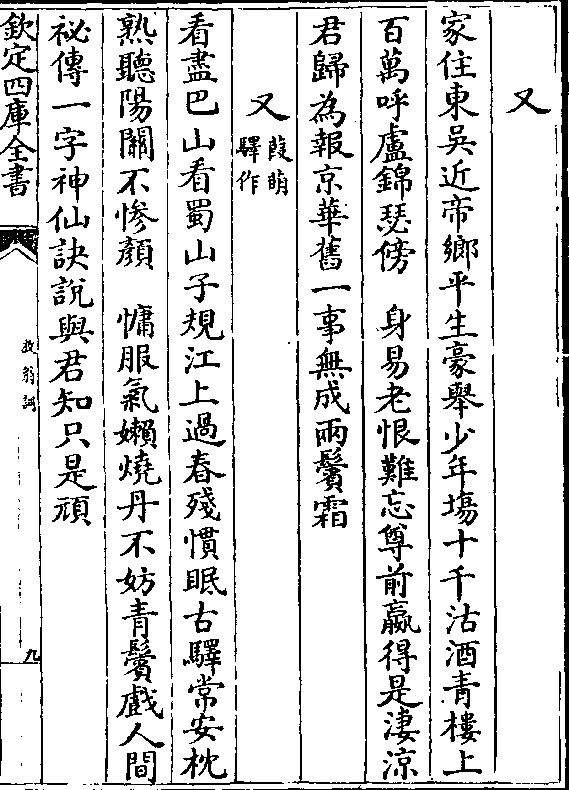 又
家住東吳近帝鄉平生豪舉少年塲十千沽酒青樓上
百萬呼盧錦瑟傍　身易老恨難忘尊前贏得是淒涼
君歸為報京華舊一事無成兩鬢霜
又葭萌驛作
看盡巴山看蜀山子規江上過春殘慣眠古驛常安枕
熟聽陽關不慘顏　慵服氣嬾燒丹不妨青鬢戲人間
祕傳一字神仙訣說與君知只是頑
欽定四庫全書
放翁詞
九